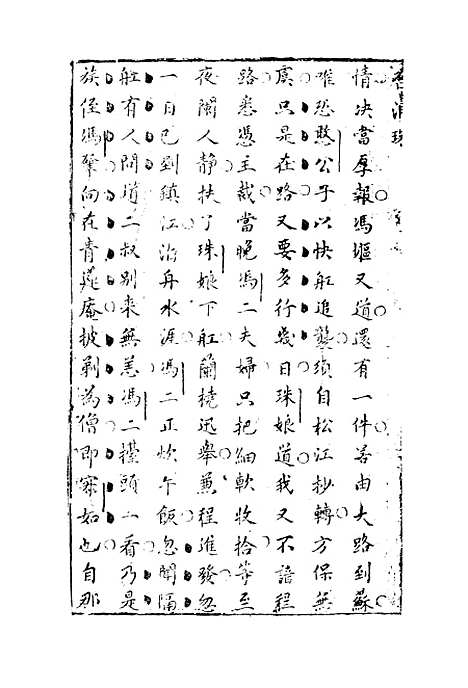 情决當厚報馮嫗又道還有一件善由大路到蘇
唯恐憨公子以快舡追襲須自松江抄轉方保無
虞只是在路又要多行幾日珠娘道我又不諳程
路悉憑主裁當晚馮二夫婦只把細軟收拾等至
夜闌人靜扶了珠娘下舡蘭橈迅舉兼程進發忽
一日已到鎮江泊舟水涯馮二正炊午飯忽聞隔
舡有人問道二叔别来無恙馮二擡頭一看乃是
族侄馮肇向在青蓮庵披剃為僧即寂如也自那